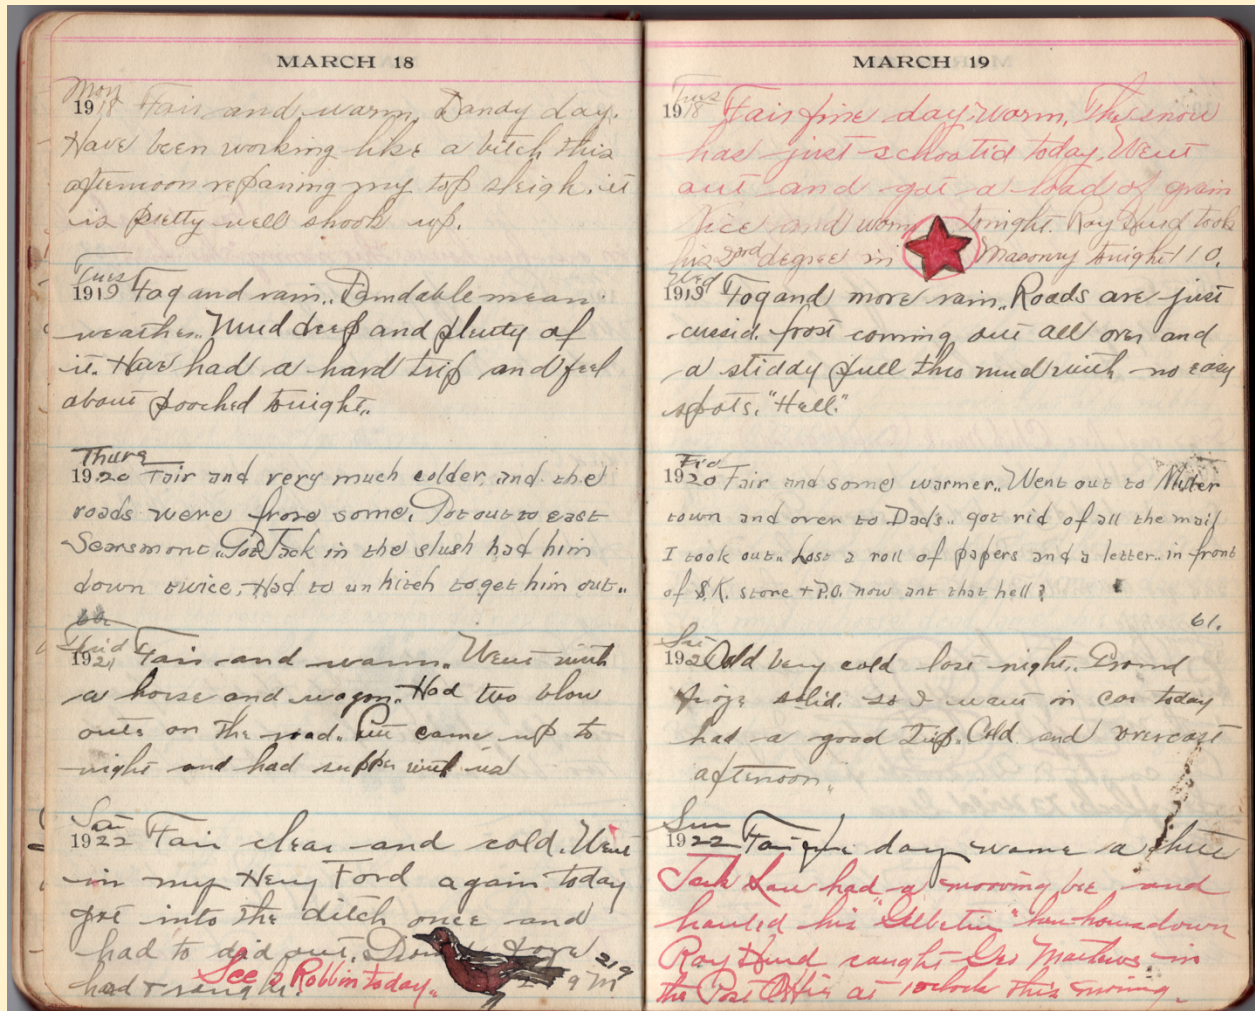 MARCH 18
Mon
1918 Fair and warm, Dandy day.
Have been working like a bitch this
afternoon repairing my top sleigh. it
is pretty well shook up.
Tues
1919 Fog and rain.. Damdable mean
weather.. Mud deep and plenty of
it. Have had a hard trip and feel
about pooched tonight..
Thurs
1920 Fair and very much colder, and the
roads were froze some. Got out to east
Searsmont.. Got Jack in the slush had him
down twice, Had to unhitch to get him out..
Frid
1921 Fair and warm.. Went with
a horse and wagon. Had two blow
outs on the road. came up to
night and had supper with us
Sat
1922 Fair clear and cold. Went
in my Henry Ford again today
got into the ditch once and
had to did out.
had
See a Robbin today..
219
MARCH 19
Tues
1918 Fair fine day, warm. The snow
has just schootid today. Went
out and got a load of grain
nice and warm tonight. Roy Hurd took
his 2nd degree in Masonry tonight
Wed
1919 Fog and more rain.. Roads are just
cussid. frost coming out all over and
a stiddy pull thro mud with no easy
spots. "Hell."
Frid
1920 Fair and some warmer.. Went out to
town and over to Dad's.. got rid of all the mail
I took out.. Lost a roll of papers and a letter.. in front
of S.K. store + P.O. now ant that hell?
61.
Sat
192 Cold Very cold last night.. Ground
froze solid. so I went in car today
had a good Trip. Cold and overcast
afternoon..
Sun
1922 Fair fine day
Jack Law had a mooving bee, and
hauled his hen house down
Roy Hurd caught Geo Mathews in
the Post Office at 1 oclock this morning.